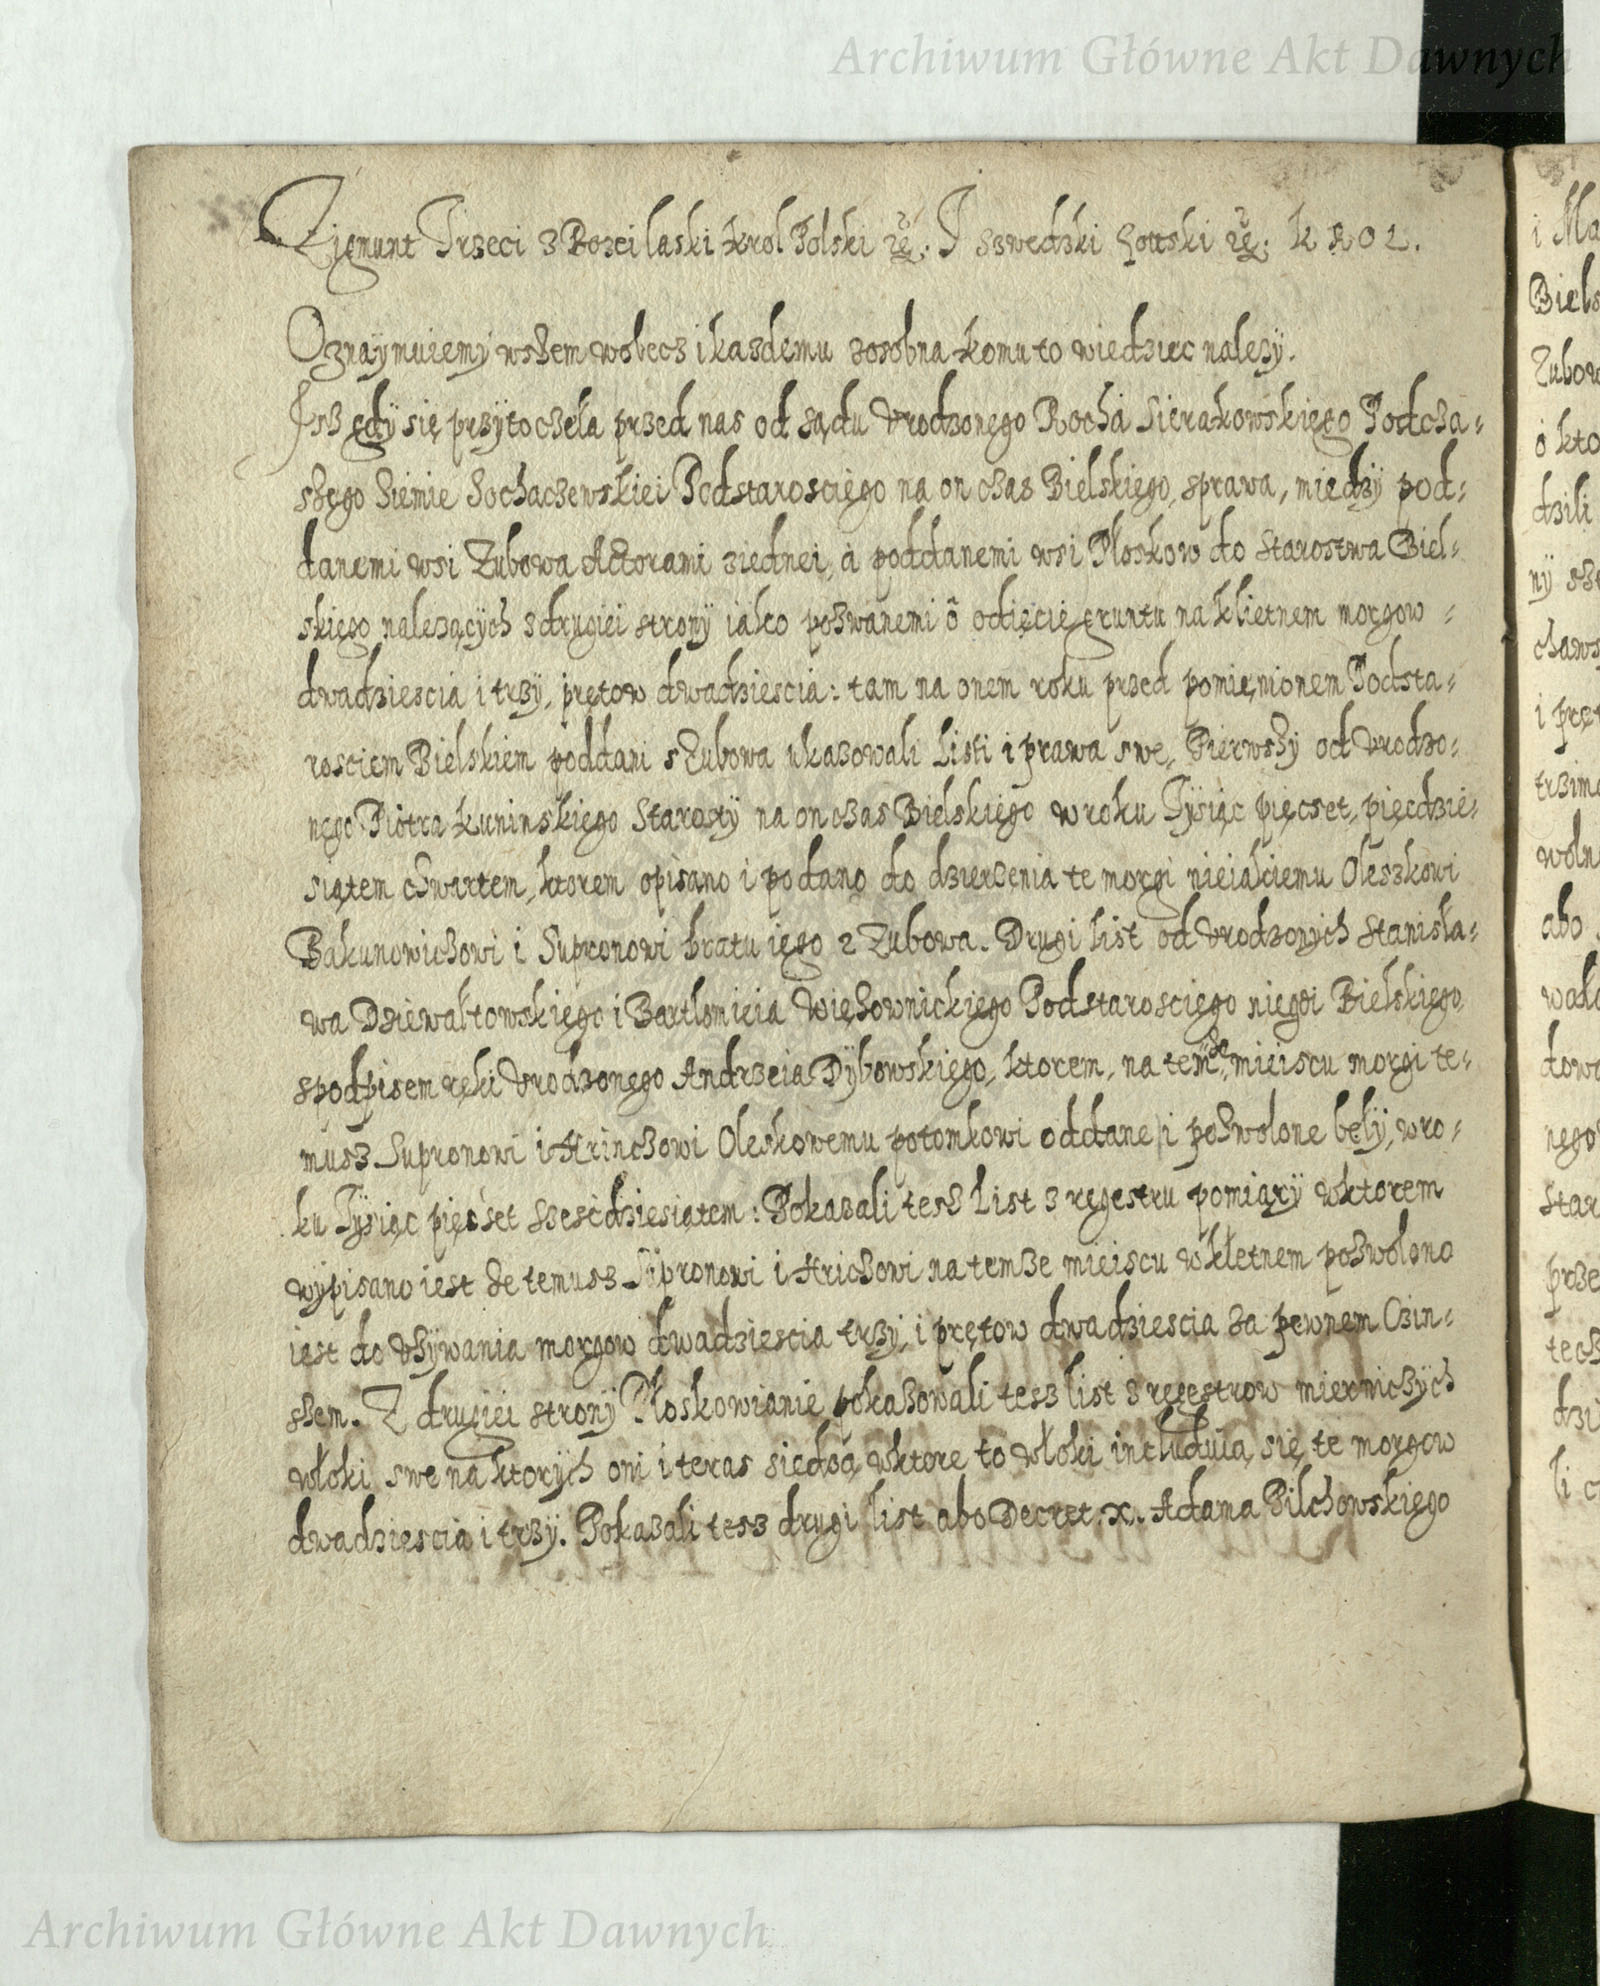 Archiwum Główne Akt Dawnych
Zigmunt Trzeci z Bozei laski krol Polski etc: I szwedzki Gottski etc: krol.
Oznaymuiemy wszem wobecz i kazdemu zosobna komu to wiedziec nalezy.
Isz gdy się przytoczeła przed nas od sądu Vrodzonego Rocha Sierakowskiego Podcza-
szego Siemie Sochaczewskiei Podstarosciego na on czas Bielskiego, sprawa, miedzy pod-
danemi wsi Zubowa Actorami ziednei, á poddanemi wsi Płoskow do Starostwa Biel-
skiego nalezących z drugiei strony iako pozwanemi ô odięcie gruntu na klietnem morgow -
dwadziescia i trzy, prętow dwadziescia: tam na onem roku przed pomienionem Podsta-
rosciem Bielskiem poddani s Zubowa ukazowali Listi i prawa swe, Pierwszy od Vrodzo-
nego Piotra Kuninskiego Starosty na on czas Bielskiego w roku Tysiąc pięcset, pięcdzie-
siątem czwartem, ktorem opisano i podano do dzierzenia te morgi nieiakiemu Oleszkowi
Bakunowiczowi i Supronowi bratu iego z Zubowa. Drugi list od Vrodzonych Stanisła-
wa Dziewałtowskiego i Bartlomieia Podstarosciego niegdi Bielskiego,
spodpisem ręki Vrodzonego Andrzeia Dybowskiego, ktorem, na temze mieiscu morgi te-
musz Supronowi i Hrinczowi Oleskowemu potomkowi oddane i pozwolone beły, w ro-
ku Tysiąc pięcset szescdziesiątem: Pokazali tesz List z regestru pomiary w ktorem
wypisano iest ze temusz Supronowi i Hriczowi na temze mieiscu w kłetnem pozwolono
iest do vzywania morgow dwadziescia trzy, i prętow dwadziescia za pewnem Czin-
szem. Z drugiei strony Płoskowianie pokazowali tesz list z regestrow mierniczych
włoki swe na ktorych oni i teras siedzą, w ktore to włoki includuią się te morgow
dwadziescia i trzy. Pokazali tesz drugi list abo Decret. X. Adama Pilchowskiego
i Ma
Biels
Zubow
ó kto
dzili
ny
i pręt
woln
abo
nego
Star
prze
tecz
dzi
li
Archiwum Główne Akt Dawnych